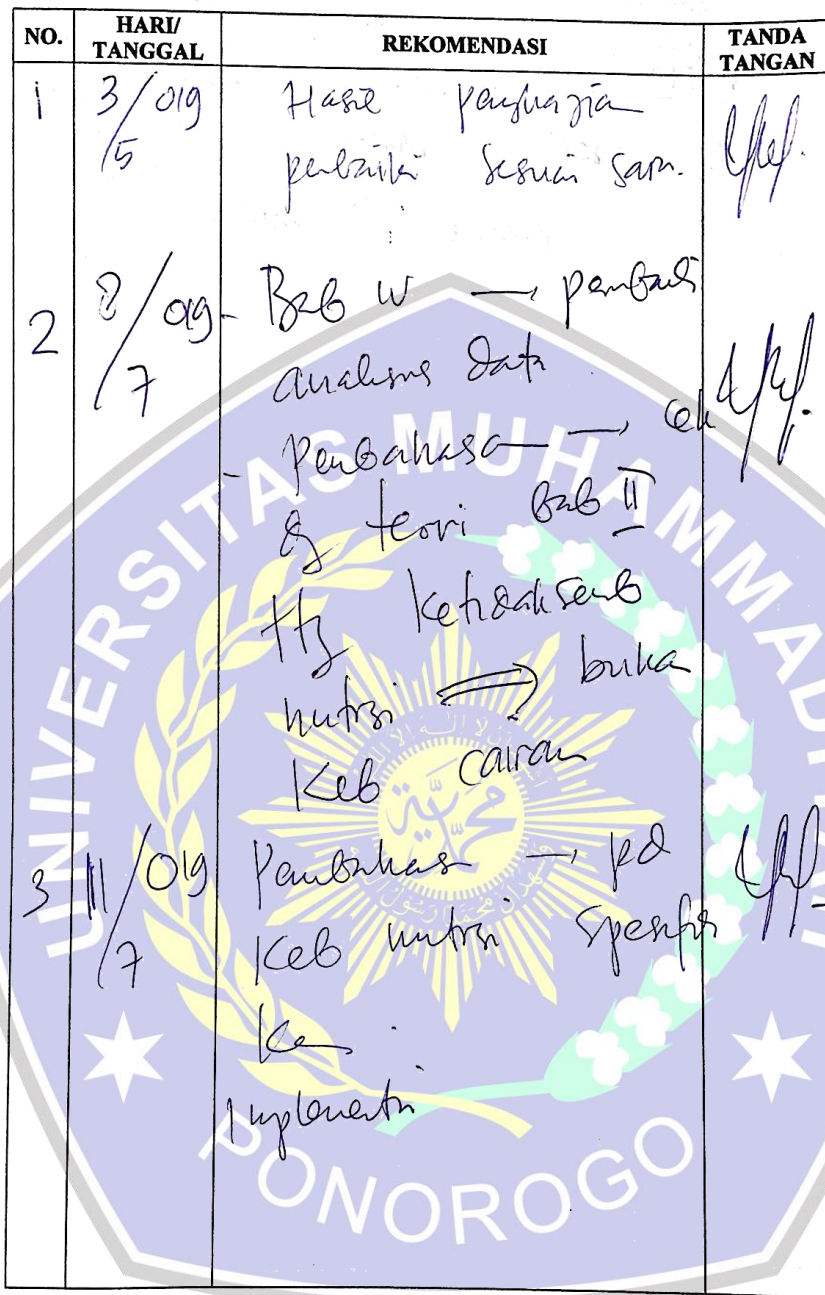 NO. HARI/TANGGAL REKOMENDASI TANDA TANGAN
1 3/5 019 Hasil pengkajian
perbaiki sesuai saran.
2 8/7 019 - Bab IV → perbaiki
analisis data
- Pembahasan → cek
dg teori Bab II
ttg ketidakseimb
nutrisi bukan
Keb cairan
3 11/7 019 Pembahasan → pd
Keb nutrisi spesifik
kan
Implementasi
UNIVERSITAS MUHAMMADIYAH
PONOROGO